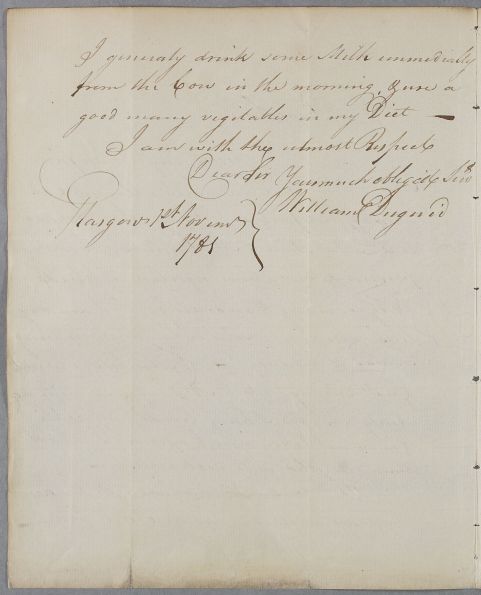 I generaly drink some Milk immediatly
from the Cow in the morning, & use a
good many vegitables in my Diet —
I am with the utmost Respect
Dear Sir Your much obliged Ser.t
Glasgow 1st Novemr William Duguid
1781